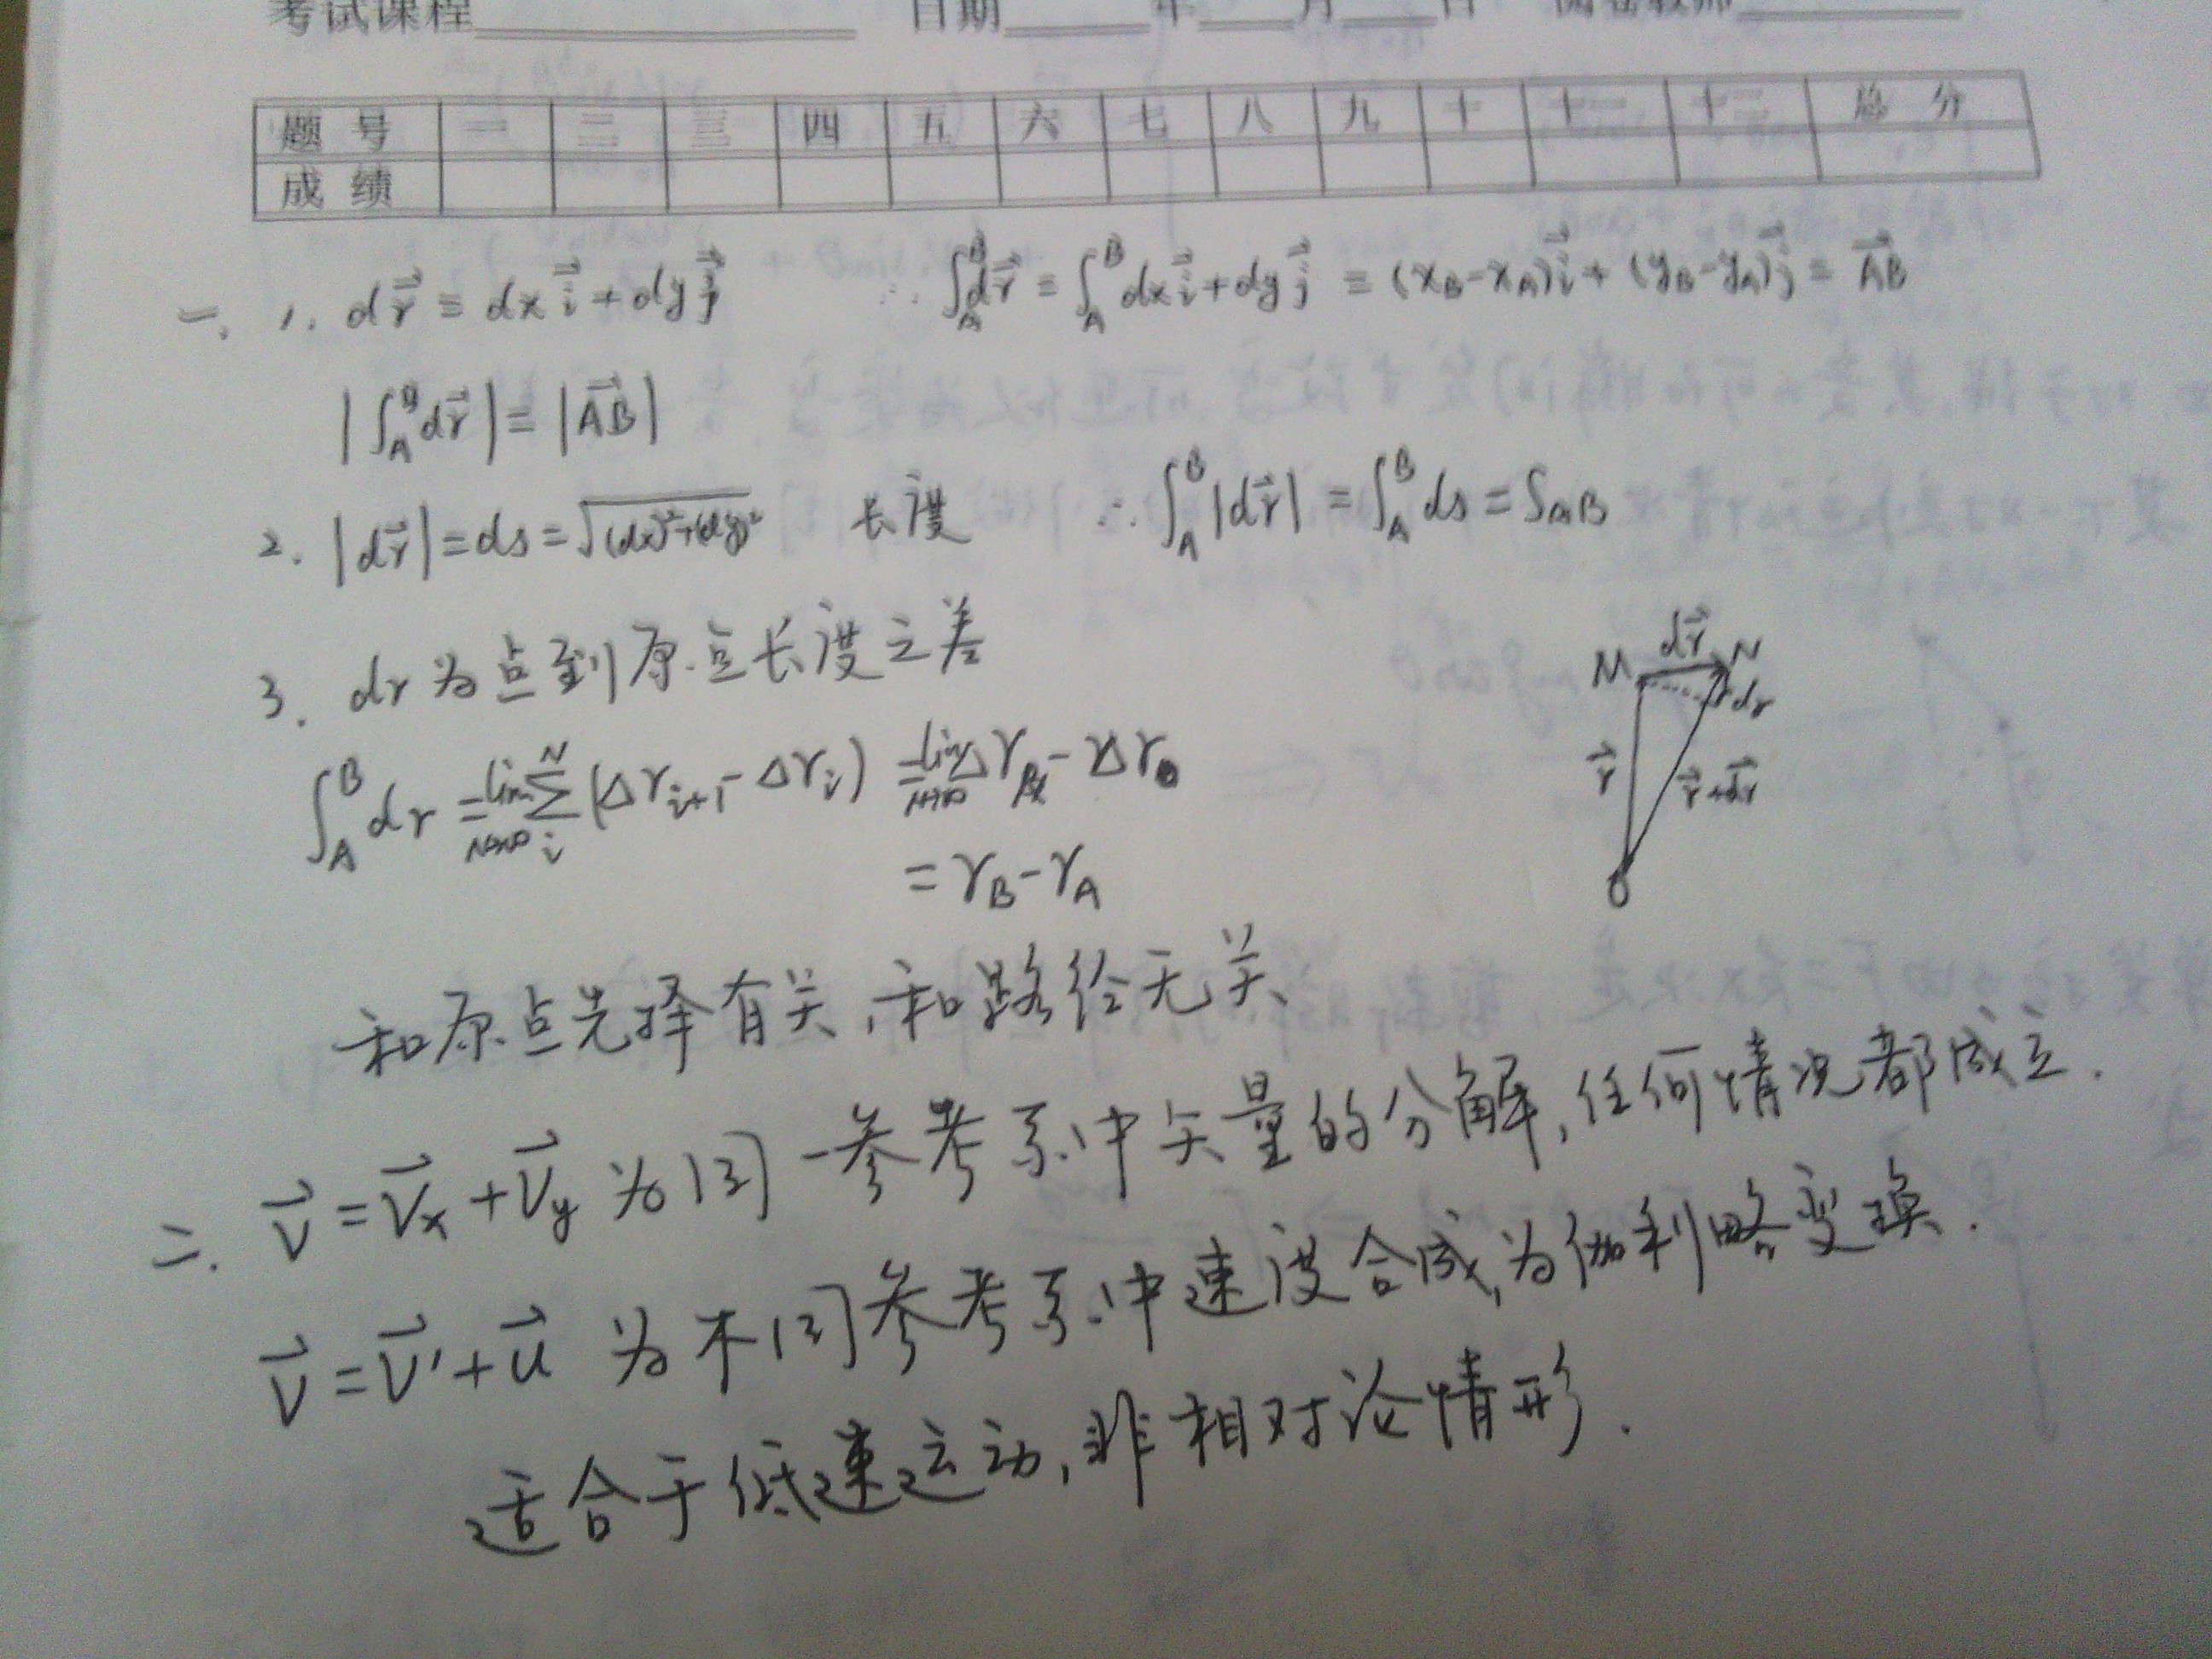 考试课程 日期 年 月 日 阅卷教师
题号 一 二 三 四 五 六 七 八 九 十 十一 十二 总分
成绩
一. 1. d\vec{r} = dx\vec{i} + dy\vec{j} ∴ ∫_A^B d\vec{r} = ∫_A^B dx\vec{i} + dy\vec{j} = (x_B - x_A)\vec{i} + (y_B - y_A)\vec{j} = \vec{AB}
|∫_A^B d\vec{r}| = |\vec{AB}|
2. |d\vec{r}| = ds = √((dx)²+(dy)²) 长度 ∴ ∫_A^B |d\vec{r}| = ∫_A^B ds = S_{AB}
3. dr 为点到原点长度之差
∫_A^B dr = lim_{N→∞} Σ_i^N (Δr_{i+1} - Δr_i) = lim_{N→∞} Δr_N - Δr_0
= r_B - r_A
d\vec{r}
M N
dr
\vec{r} \vec{r}+d\vec{r}
O
和原点选择有关,和路径无关
二. \vec{V} = \vec{V}_x + \vec{V}_y 为同一参考系中矢量的分解,任何情况都成立.
\vec{V} = \vec{V}' + \vec{u} 为不同参考系中速度合成,为伽利略变换.
适合于低速运动,非相对论情形.